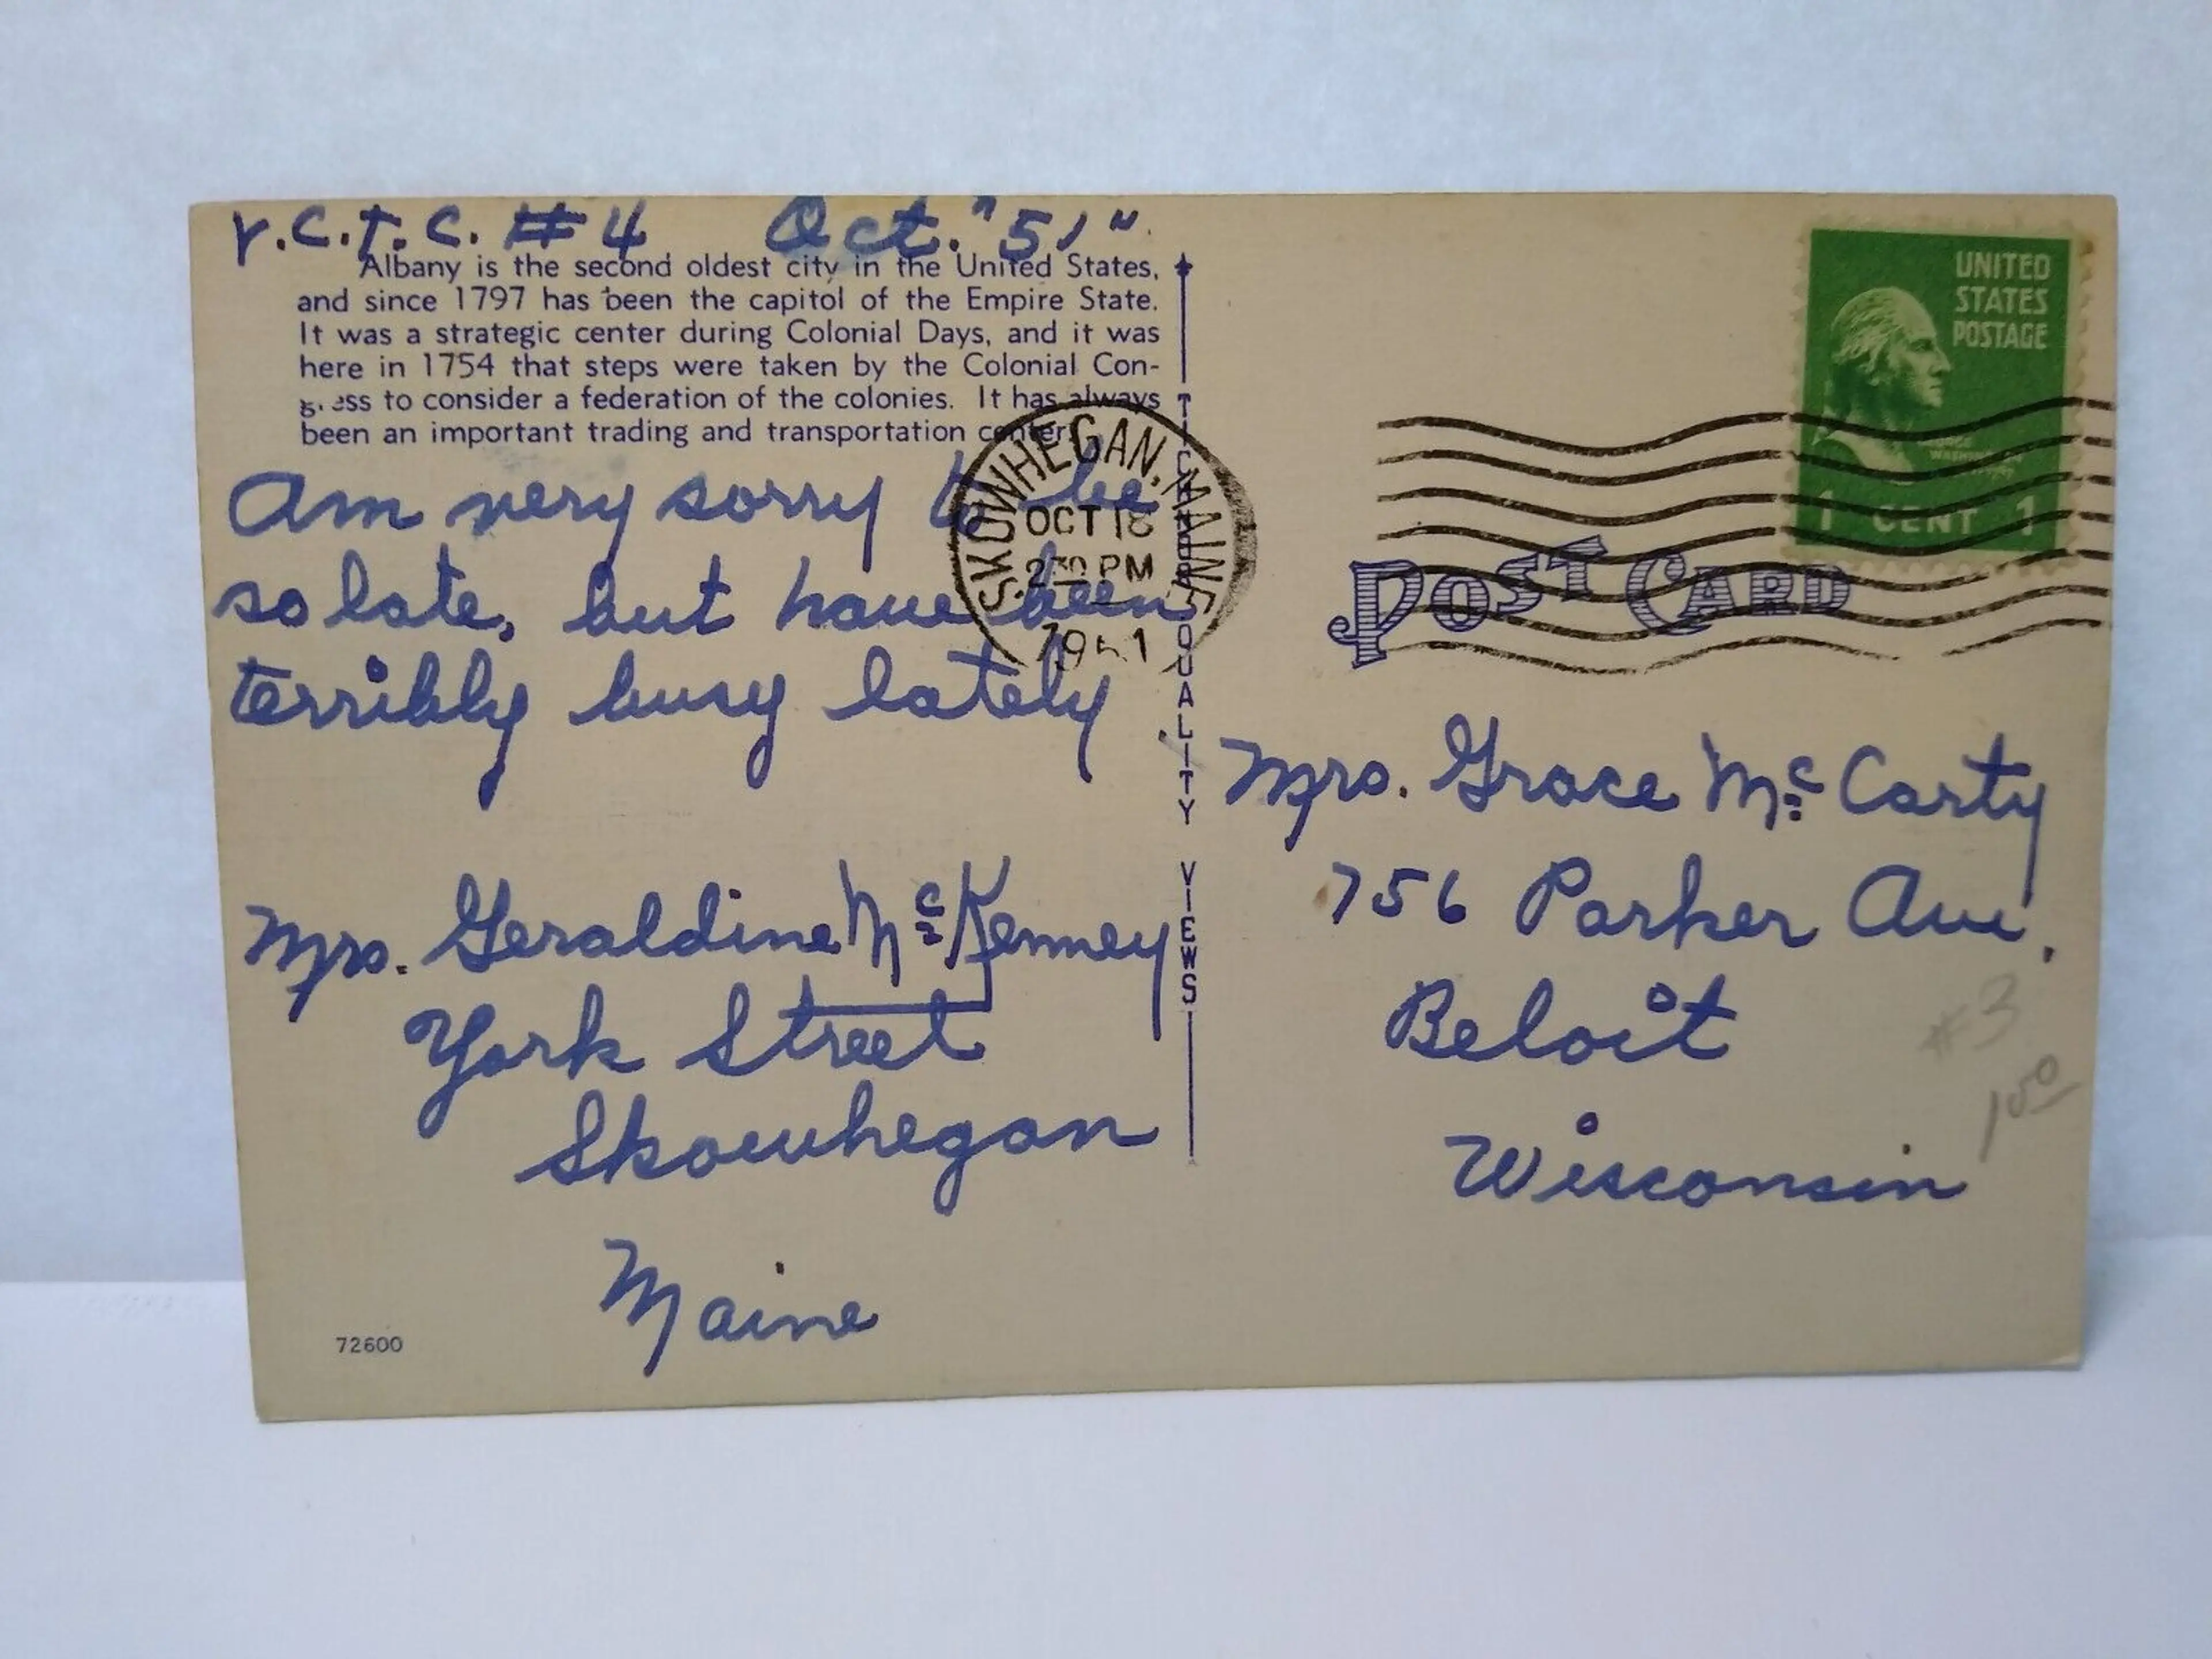 V.C.T.C. #4 Oct. "51"
Albany is the second oldest city in the United States,
and since 1797 has been the capitol of the Empire State.
It was a strategic center during Colonial Days, and it was
here in 1754 that steps were taken by the Colonial Con-
gress to consider a federation of the colonies. It has always
been an important trading and transportation center.
Am very sorry to be
so late, but have been
terribly busy lately
Mrs. Geraldine McKenney
York Street
Skowhegan
Maine
72600
SKOWHEGAN, MAINE
OCT
2 30 PM
1951
TICHNOR QUALITY VIEWS
UNITED
STATES
POSTAGE
1 CENT 1
POST CARD
Mrs. Grace McCarty
756 Parker Ave.
Beloit
Wisconsin
#3
1 50